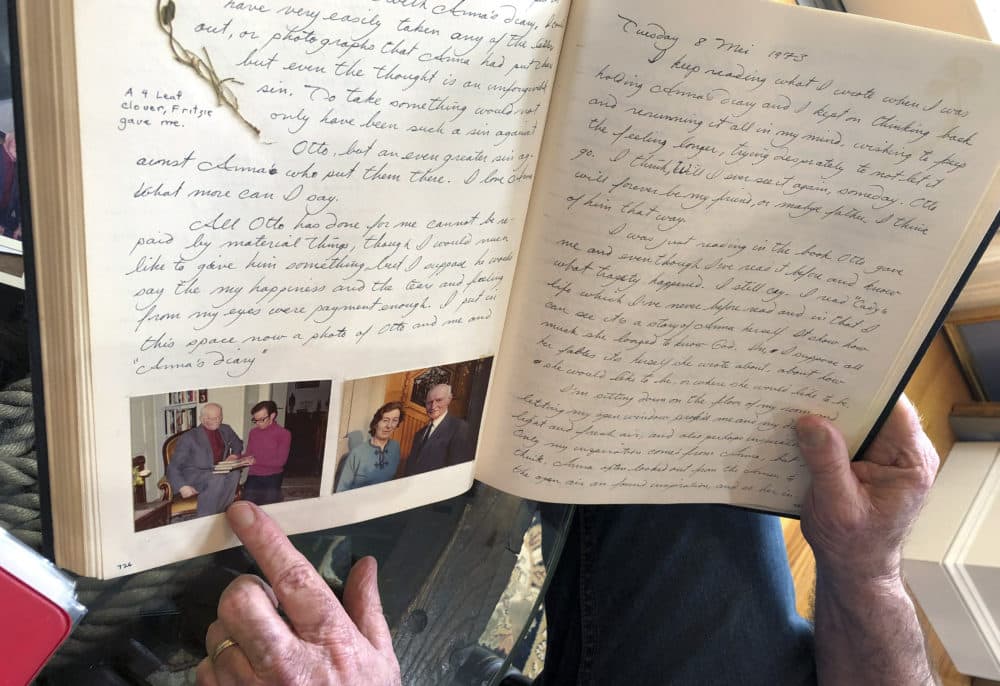 with Anna's diary,
have very easily taken any of the letters
out, or photographs that Anna had put there
but even the thought is an unforgivable
sin. To take something would not
only have been such a sin against
Otto, but an even greater sin ag-
ainst Anna who put them there. I love Anna
What more can I say.
All Otto has done for me cannot be re-
paid by material things, though I would much
like to give him something, but I suppose he would
say the my happiness and the tears and feeling
from my eyes were payment enough. I put in
this space now a photo of Otto and me and
"Anna's diary"
A 4 Leaf
clover, Fritzie
gave me.
726
Tuesday 8 Mei 1973
I keep reading what I wrote when I was
holding Anna's diary and I kept on thinking back
and rerunning it all in my mind, wishing to keep
the feeling longer, trying desperately to not let it
go. I think, will I ever see it again, someday. Otto
will forever be my friend, or maybe father. I think
of him that way.
I was just reading in the book Otto gave
me and even though I've read it before and know
what tragety happened. I still cry. I read "Cady's
life which I've never before read and in that I
can see it's a story of Anna herself. It show how
much she longed to know God. I suppose all
her fables its herself she wrote about, about how
she would like to be, or where she would like to be
I'm sitting down on the floor of my room and
letting my open window and my
light and fresh air, and also perhaps
Only my inspiration comes from Anna, but
think, Anna often looked out from the to
the open air an found inspiration, and as her in